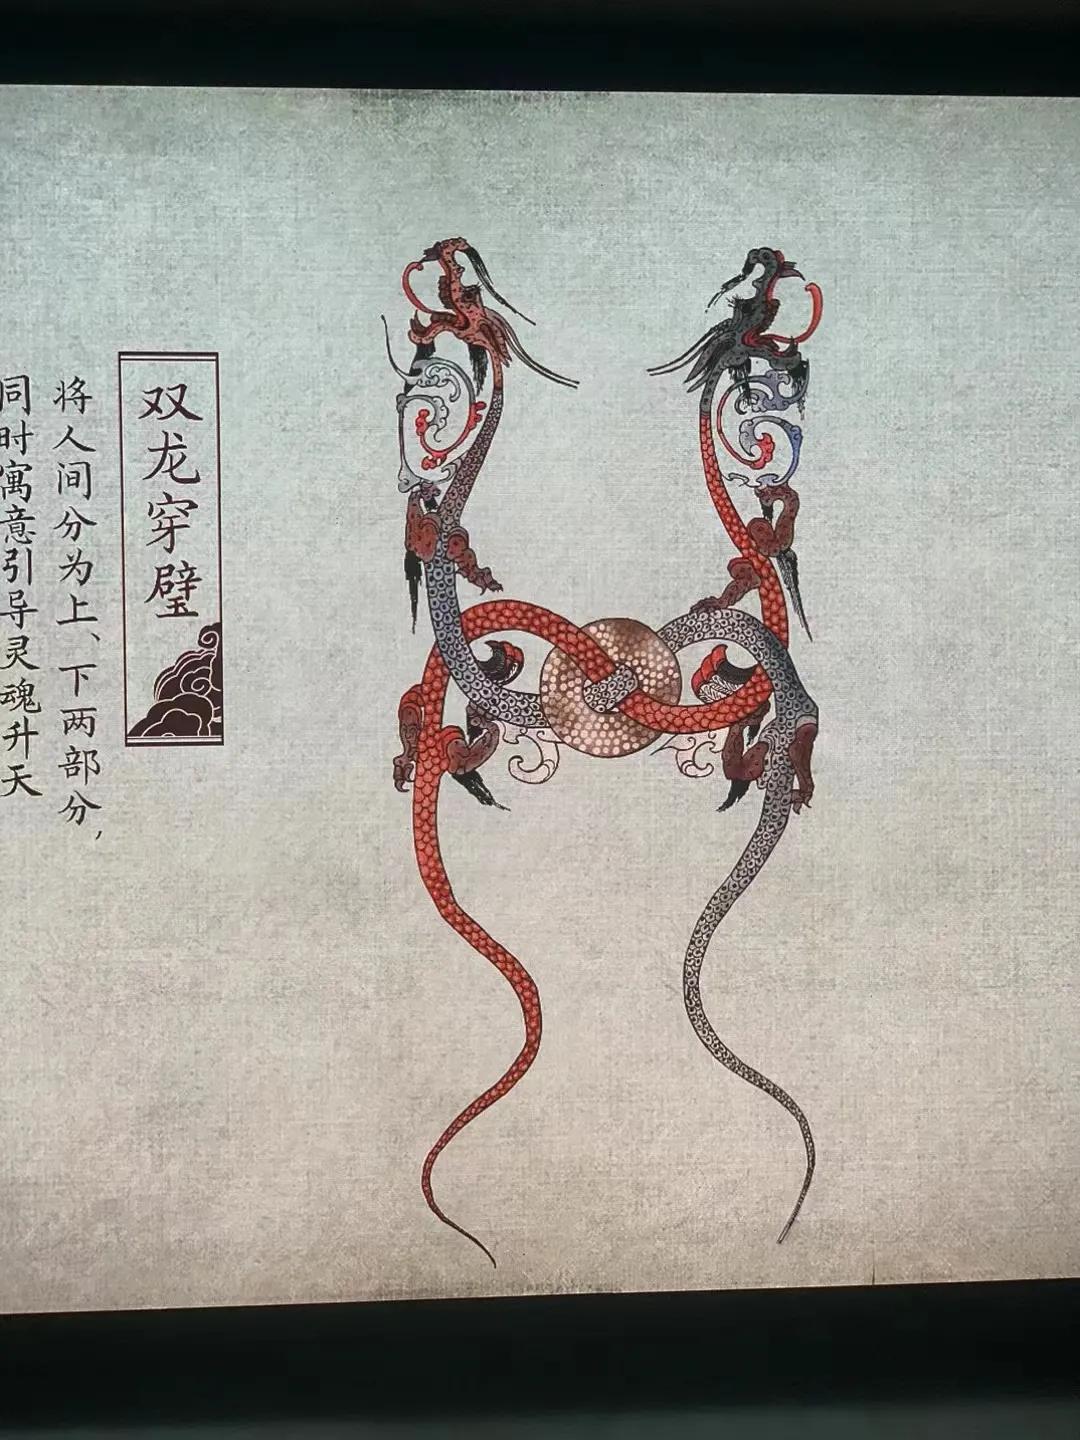 双龙穿璧
将人间分为上、下两部分，
同时寓意引导灵魂升天